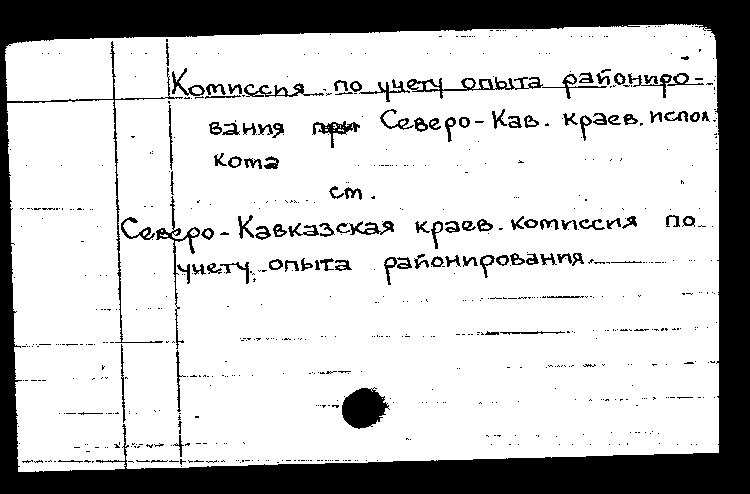 Комиссия по учету опыта районниро-
вания при Северо-Кав. краев. испол.
кома
см.
Северо-Кавказская краев. комиссия по
учету опыта районирования.